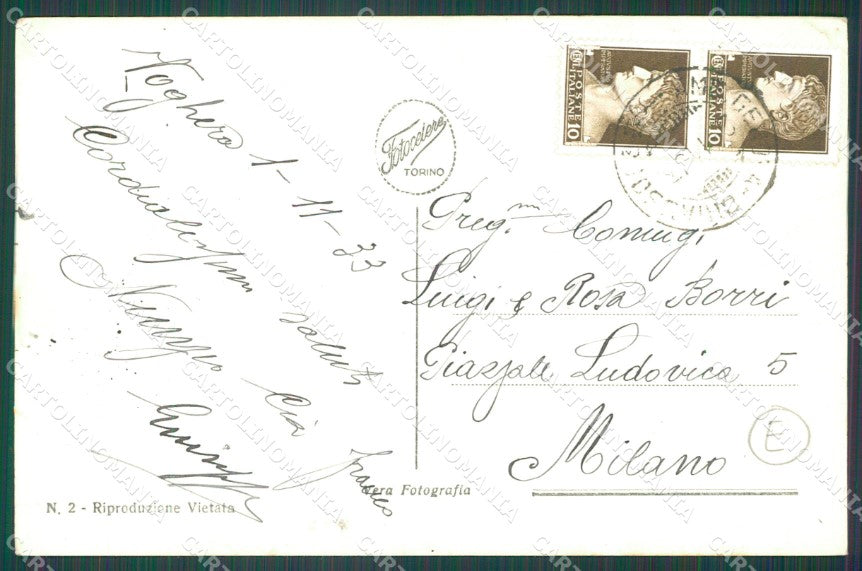 Voghera 1-11-33
Cordialissimi saluti
Zia
Franco
Fotocelere
TORINO
POSTE ITALIANE
10
POSTE ITALIANE
10
Preg.mi Coniugi
Luigi e Rosa Borri
Piazzale Ludovica 5
Milano
E
Vera Fotografia
N. 2 - Riproduzione Vietata
CARTOLINOMANIA